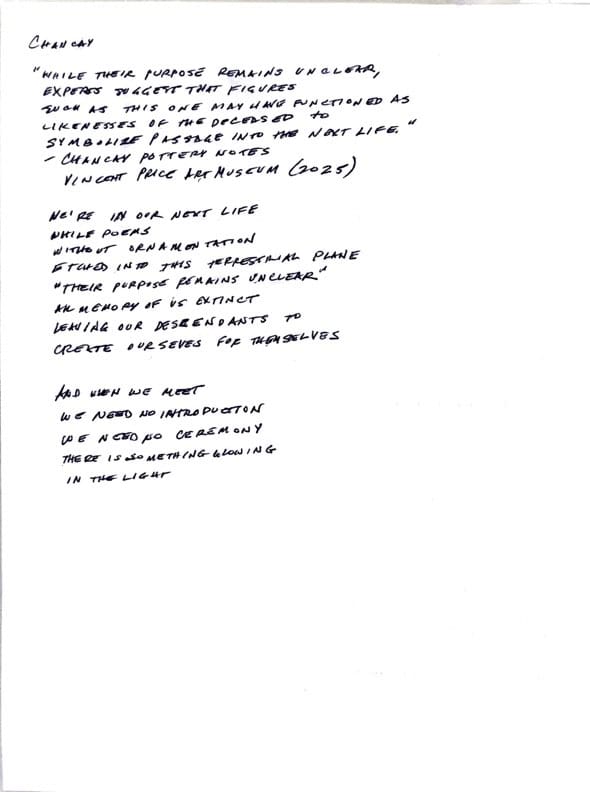 CHANCAY
"WHILE THEIR PURPOSE REMAINS UNCLEAR,
EXPERTS SUGGEST THAT FIGURES
SUCH AS THIS ONE MAY HAVE FUNCTIONED AS
LIKENESSES OF THE DECEASED TO
SYMBOLIZE PASSAGE INTO THE NEXT LIFE."
- CHANCAY POTTERY NOTES
VINCENT PRICE ART MUSEUM (2025)
WE'RE IN OUR NEXT LIFE
WHILE POEMS
WITHOUT ORNAMENTATION
ETCHED INTO THIS TERRESTRIAL PLANE
"THEIR PURPOSE REMAINS UNCLEAR"
MEMORY OF US EXTINCT
LEAVING OUR DESCENDANTS TO
CREATE OURSEVES FOR THEMSELVES
AND WHEN WE MEET
WE NEED NO INTRODUCTION
WE NEED NO CEREMONY
THERE IS SOMETHING GLOWING
IN THE LIGHT